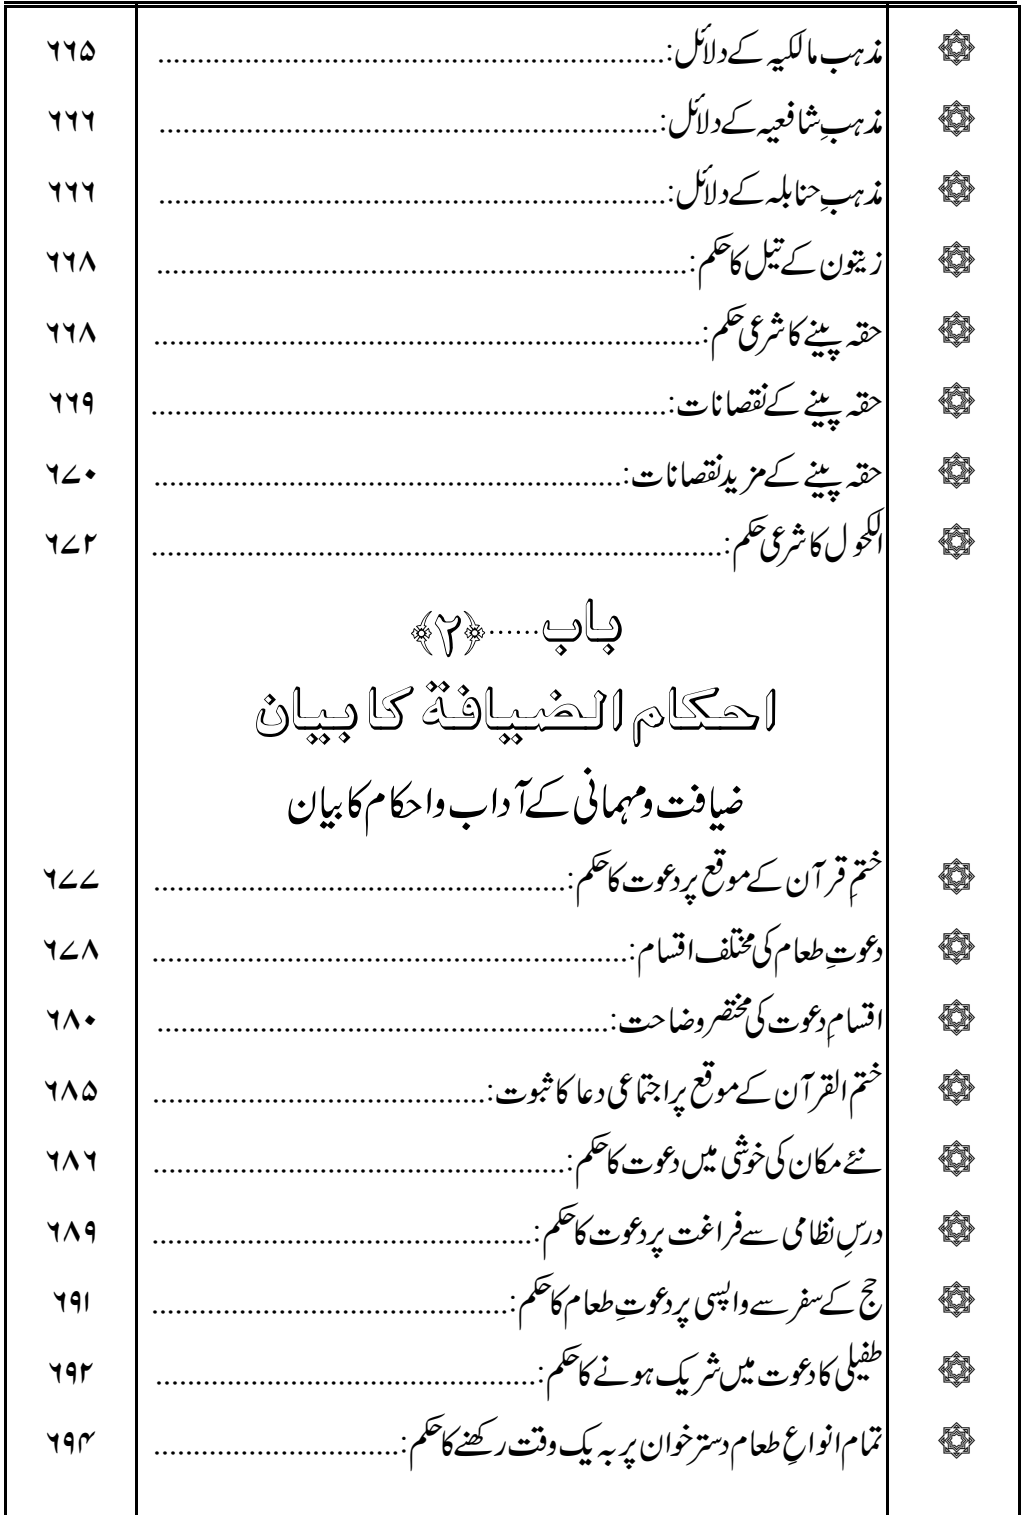 مذہب مالکیہ کے دلائل:................................................................ ۶۶۵
مذہبِ شافعیہ کے دلائل:................................................................ ۶۶۶
مذہبِ حنابلہ کے دلائل:................................................................ ۶۶۶
زیتون کے تیل کا حکم:................................................................ ۶۶۸
حقہ پینے کا شرعی حکم:................................................................ ۶۶۸
حقہ پینے کے نقصانات:................................................................ ۶۶۹
حقہ پینے کے مزید نقصانات:................................................................ ۶۷۰
الکحول کا شرعی حکم:................................................................ ۶۷۲
باب......﴿۲﴾
احکام الضیافة کا بیان
ضیافت ومہمانی کے آداب واحکام کا بیان
ختمِ قرآن کے موقع پر دعوت کا حکم:.................................................... ۶۷۷
دعوتِ طعام کی مختلف اقسام:............................................................ ۶۷۸
اقسامِ دعوت کی مختصر وضاحت:......................................................... ۶۸۰
ختم القرآن کے موقع پر اجتماعی دعا کا ثبوت:.......................................... ۶۸۵
نئے مکان کی خوشی میں دعوت کا حکم:.................................................... ۶۸۶
درسِ نظامی سے فراغت پر دعوت کا حکم:................................................ ۶۸۹
حج کے سفر سے واپسی پر دعوتِ طعام کا حکم:............................................. ۶۹۱
طفیلی کا دعوت میں شریک ہونے کا حکم:................................................ ۶۹۲
تمام انواعِ طعام دسترخوان پر بہ یک وقت رکھنے کا حکم:............................... ۶۹۴